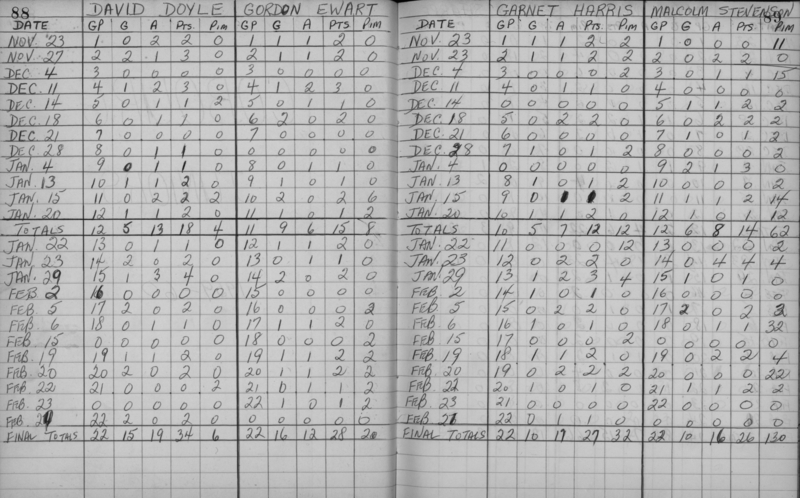 88 DAVID DOYLE GORDON EWART
DATE GP G A Pts. Pim GP G A PTS Pim
NOV 23 1 0 2 2 0 1 1 1 2 0
NOV 27 2 2 1 3 0 2 1 1 2 0
DEC. 4 3 0 0 0 0 3 0 0 0 0
DEC. 11 4 1 2 3 0 4 1 2 3 0
DEC. 14 5 0 1 1 2 5 0 1 1 0
DEC. 18 6 0 1 1 0 6 2 0 2 0
DEC. 21 7 0 0 0 0 7 0 0 0 0
DEC. 28 8 0 1 1 0 0 0 0 0
JAN. 4 9 0 1 1 0 8 0 1 1 0
JAN. 13 10 1 1 2 0 9 1 0 1 0
JAN. 15 11 0 2 2 2 10 2 0 2 6
JAN. 20 12 1 1 2 0 11 1 0 1 2
TOTALS 12 5 13 18 4 11 9 6 15 8
JAN. 22 13 0 1 1 0 12 1 1 2 0
JAN. 23 14 2 0 2 0 13 0 1 1 0
JAN. 29 15 1 3 4 0 14 2 0 2 0
FEB 2 16 0 0 0 0 15 0 0 0 0
FEB 5 17 2 0 2 0 16 0 0 0 2
FEB. 6 18 0 1 1 0 17 1 1 2 0
FEB 15 0 0 0 0 0 18 0 0 0 2
FEB. 19 19 1 1 2 0 19 1 1 2 2
FEB. 20 20 2 0 2 0 20 1 1 2 2
FEB. 22 21 0 0 0 2 21 0 1 1 2
FEB. 23 0 0 0 0 0 22 1 0 1 2
FEB. 22 2 0 2 0 0 0 0 0 0
FINAL TOTALS 22 15 19 34 6 22 16 12 28 20
GARNET HARRIS MALCOLM STEVENSON 89
DATE GP G A Pts Pim GP G A Pts. Pim
NOV. 23 1 1 1 2 2 1 0 0 0 11
NOV 23 2 1 1 2 2 2 0 2 2 0
DEC. 4 3 0 0 0 2 3 0 1 1 15
DEC 11 4 0 1 1 0 4 0 0 0 0
DEC. 14 0 0 0 0 0 5 1 1 2 2
DEC. 18 5 0 2 2 0 6 0 2 2 2
DEC. 21 6 0 0 0 0 7 1 0 1 2
DEC. 28 7 1 0 1 2 8 0 0 0 2
JAN. 4 0 0 0 0 0 9 2 1 3 0
JAN. 13 8 1 0 1 2 10 0 0 0 2
JAN. 15 9 0 1 1 2 11 1 1 2 14
JAN. 20 10 1 1 2 0 12 1 0 1 12
TOTALS 10 5 7 12 12 12 6 8 14 62
JAN. 22 11 0 0 0 12 13 0 0 0 2
JAN. 23 12 0 2 2 0 14 0 4 4 4
JAN. 29 13 1 2 3 4 15 1 0 1 0
FEB. 2 14 1 0 1 0 16 0 0 0 0
FEB. 5 15 0 2 2 0 17 2 0 2 2
FEB. 6 16 1 0 1 0 18 0 1 1 32
FEB. 15 17 0 0 0 2 0 0 0 0 0
FEB. 19 18 1 1 2 0 19 0 2 2 4
FEB. 20 19 0 2 2 2 20 0 0 0 22
FEB. 22 20 1 0 1 0 21 1 1 2 2
FEB. 23 21 0 0 0 0 22 0 0 0 0
FEB 22 0 1 1 0 0 0 0 0 0
FINAL TOTALS 22 10 17 27 32 22 10 16 26 130